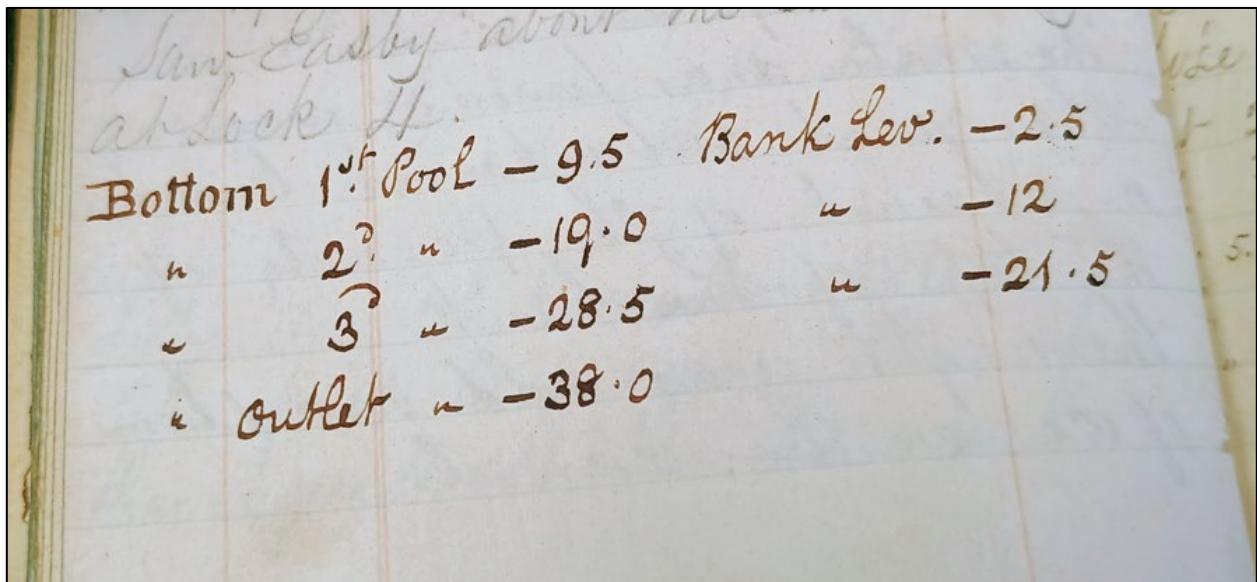 Saw Easby about the
at Lock 4.
Bottom 1st. Pool - 9.5 Bank Lev. - 2.5
" 2d. " - 19.0 " - 12
" 3d " - 28.5 " - 21.5
" Outlet " - 38.0